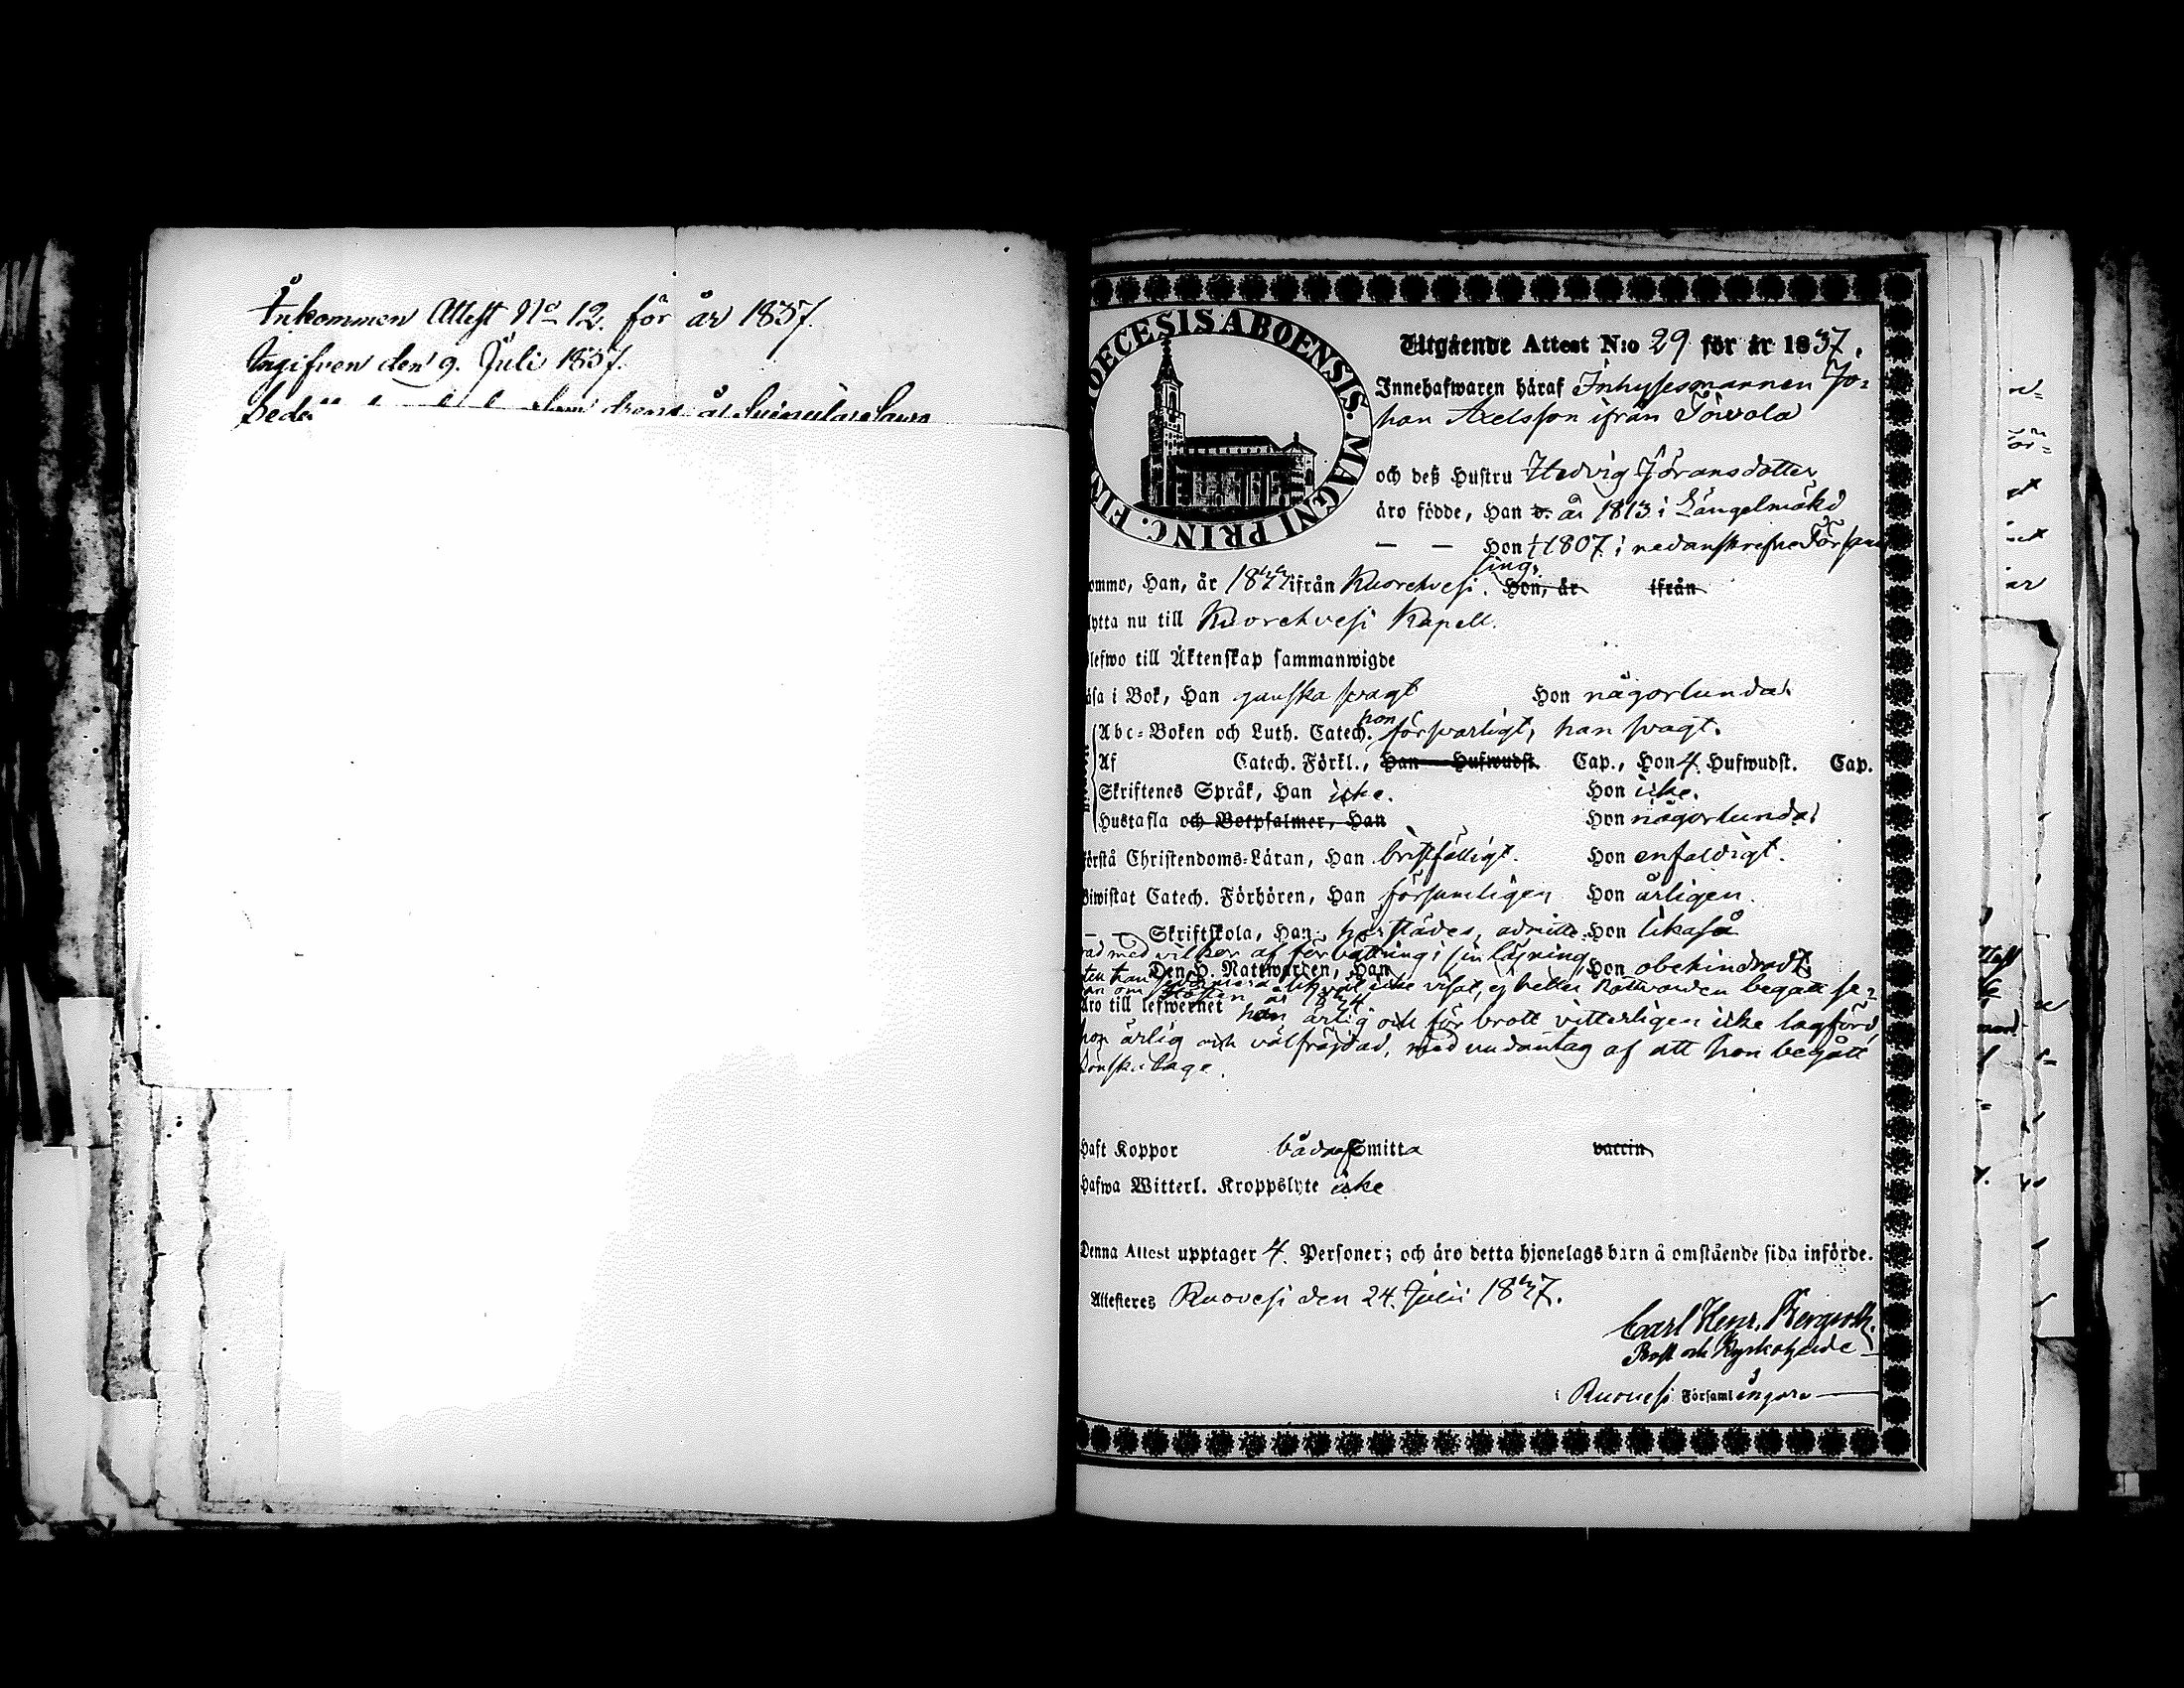 Inkommen Attest No 12. för år 1837.
Ingifven den 9. Juli 1837.
DIOECESIS ABOENSIS. MAGNI PRINC. FIN
Utgående Attest N:o 29 för år 1837.
Innehafwaren häraf Inhysesmannen Jo-
han Axelsson ifrån
och deß Hustru Hedvig Jöransdotter
äro födde, Han d. år 1813 i Längelmäki
— — Hon 1807 i nedanskrefne Försam
ling.
ommo, Han, år ifrån Kuorehvesi. Hon, år ifrån
lytta nu till Kuorehvesi Kapell.
lefwo till Äktenskap sammanwigde
äsa i Bok, Han ganska svagt Hon någorlunda.
Abc-Boken och Luth. Catech. hon försvarligt, han svagt.
Af Catech. Förkl., Han Hufwudst. Cap., Hon 4 Hufwudst. Cap.
Skriftenes Språk, Han icke. Hon icke.
Hustafla och Botpsalmer, Han Hon någorlunda
örstå Christendoms-Läran, Han bristfälligt. Hon enfaldigt.
Biwistat Catech. Förhören, Han försumligen Hon årligen.
— — Skriftskola, Han härstädes, admitte- Hon likaså
rad med vilkor af förbättring i sin läsning,
Den H. Nattwarden, Han Hon obehindradt.
icke visat, ej heller Nattvarden begått se-
äro till lefwernet han ärlig och för brott vitterligen icke lagförd,
hon ärlig och välfräjdad, med undantag af att hon begått
lönskaläge.
Haft Koppor båda Smitta vaccin
Hafwa Witterl. Kroppslyte icke
Denna Attest upptager 4. Personer; och äro detta hjonelags barn å omstående sida införde.
Attesteres Ruovesi den 24. Julii 1837.
Carl Henr. Bergroth.
Prost och Kyrkoherde
i Ruovesi Församlingar